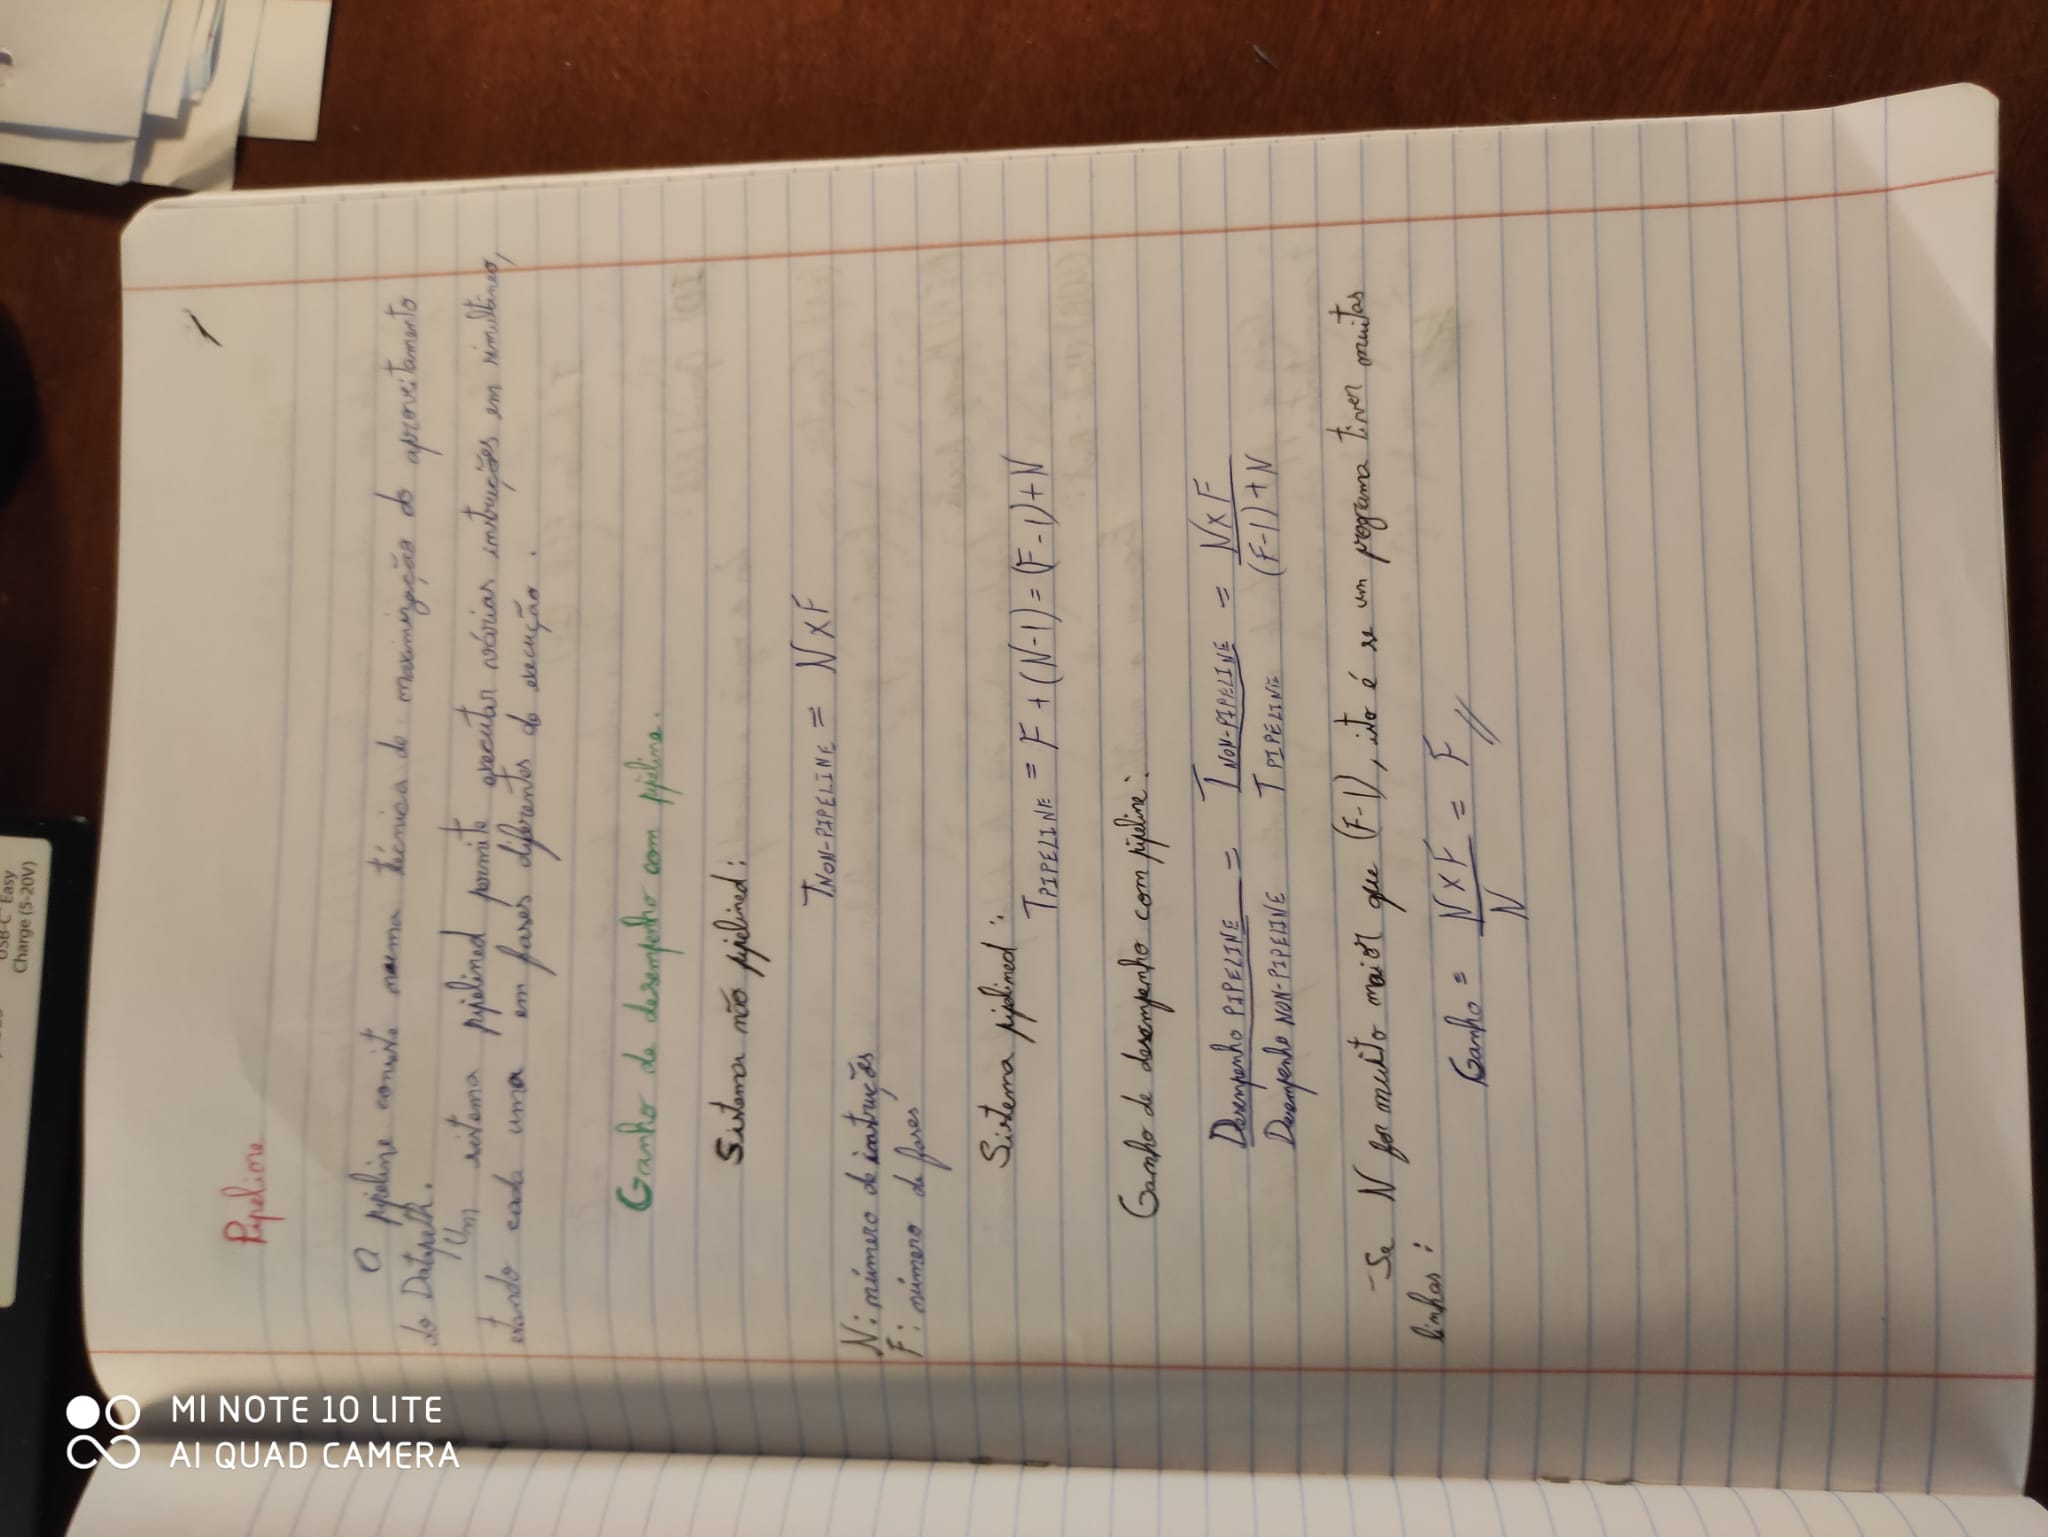 USB-C Easy
Charge (5-20V)
MI NOTE 10 LITE
AI QUAD CAMERA
Pipeline
A pipeline consiste numa técnica de maximização do aproveitamento
do Datapath.
Um sistema pipelined permite executar várias instruções em simultâneo,
estando cada uma em fases diferentes de execução.
Ganho de desempenho com pipeline.
Sistema não pipelined:
TNON-PIPELINE = N x F
N: número de instruções
F: número de fases
Sistema pipelined:
TPIPELINE = F + (N-1) = (F-1) + N
Ganho de desempenho com pipeline:
Desempenho PIPELINE = TNON-PIPELINE = N x F
Desempenho NON-PIPELINE TPIPELINE (F-1) + N
- Se N for muito maior que (F-1), isto é se um programa tiver muitas
linhas:
Ganho = N x F = F //
N